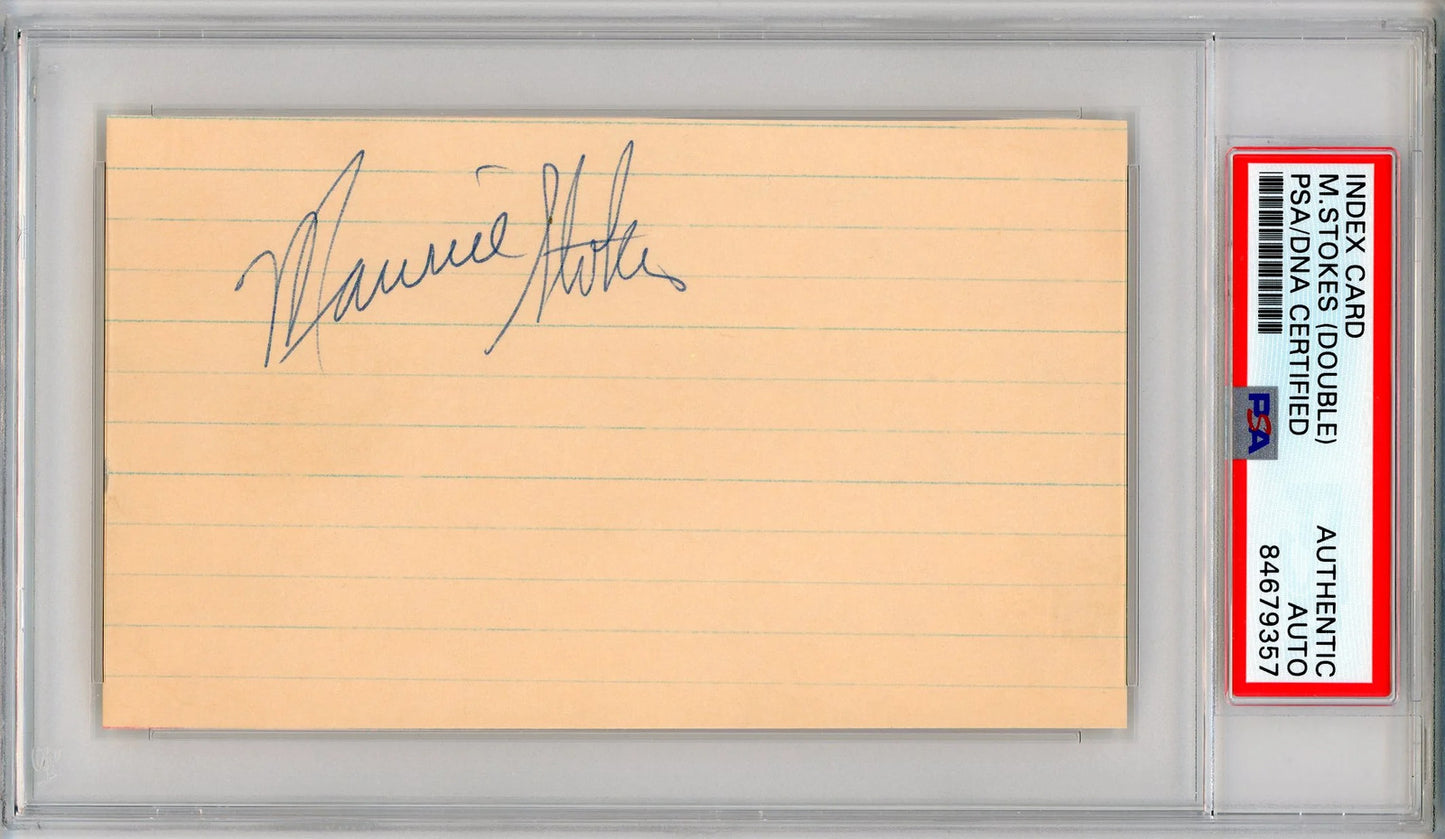 Maurice Stokes
INDEX CARD
M.STOKES (DOUBLE)
PSA/DNA CERTIFIED
PSA
AUTHENTIC
AUTO
84679357